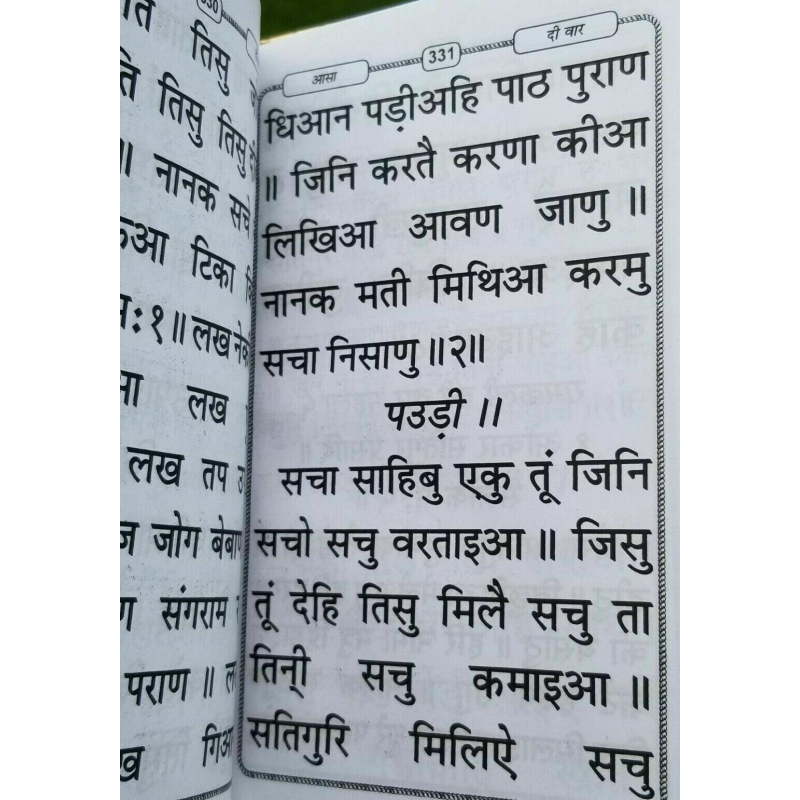 330
ति तिसु
ते तिसु तिसु
॥ नानक सचे
टिका
लख
लख
लख तप
जोग
संगराम
पराण ॥
आसा 331 दी वार
धिआन पड़ीअहि पाठ पुराण
॥ जिनि करतै करणा कीआ
लिखिआ आवण जाणु ॥
नानक मती मिथिआ करमु
सचा निसाणु ॥२॥
पउड़ी ॥
सचा साहिबु एकु तूं जिनि
सचो सचु वरताइआ ॥ जिसु
तूं देहि तिसु मिलै सचु ता
तिन्ी सचु कमाइआ ॥
सतिगुरि मिलिऐ सचु